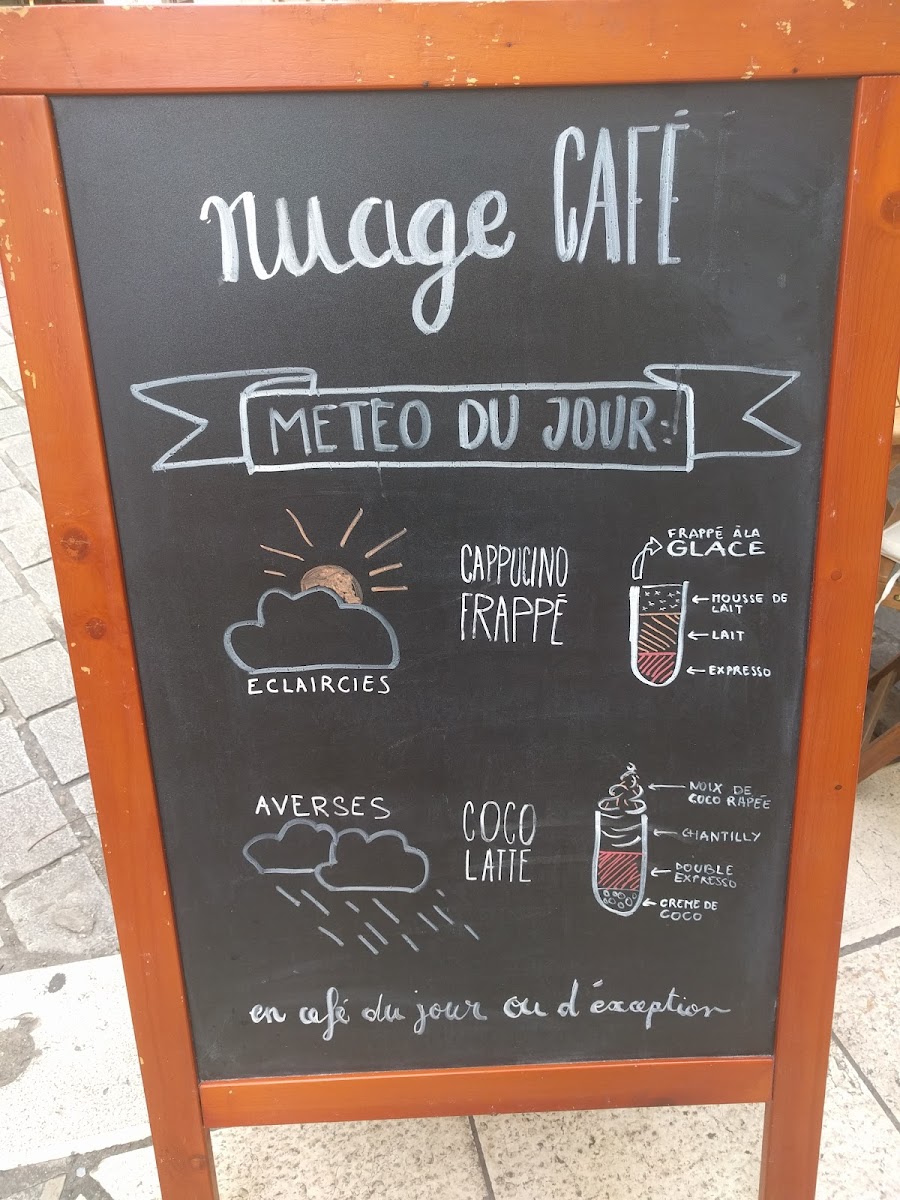 nuage CAFÉ
METEO DU JOUR:
ECLAIRCIES
CAPPUCINO
FRAPPÉ
FRAPPÉ À LA
GLACE
MOUSSE DE
LAIT
LAIT
EXPRESSO
AVERSES
COCO
LATTE
NOIX DE
COCO RAPÉE
CHANTILLY
DOUBLE
EXPRESSO
CREME DE
COCO
en café du jour ou d'éxception